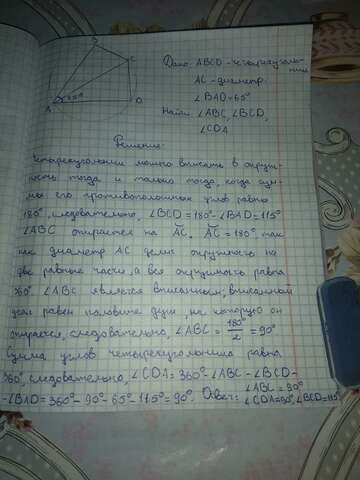 B
C
A
65°
D
Дано: ABCD - четырехуголь-
ник
AC - диаметр
∠BAD = 65°
Найти: ∠ABC, ∠BCD,
∠CDA
Решение:
Четырехугольник можно вписать в окруж-
ность тогда и только тогда, когда сум-
мы его противоположных углов равны
180°, следовательно, ∠BCD = 180° - ∠BAD = 115°
∠ABC опирается на AC. AC = 180°, так
как диаметр AC делит окружность на
две равные части, а вся окружность равна
360°. ∠ABC является вписанным, вписанный
угол равен половине дуги, на которую он
опирается, следовательно, ∠ABC = 180°/2 = 90°
Сумма углов четырехугольника равна
360°, следовательно, ∠CDA = 360° - ∠ABC - ∠BCD -
- ∠BAD = 360° - 90° - 65° - 115° = 90°. Ответ: ∠ABC = 90°
∠CDA = 90°, ∠BCD = 115°